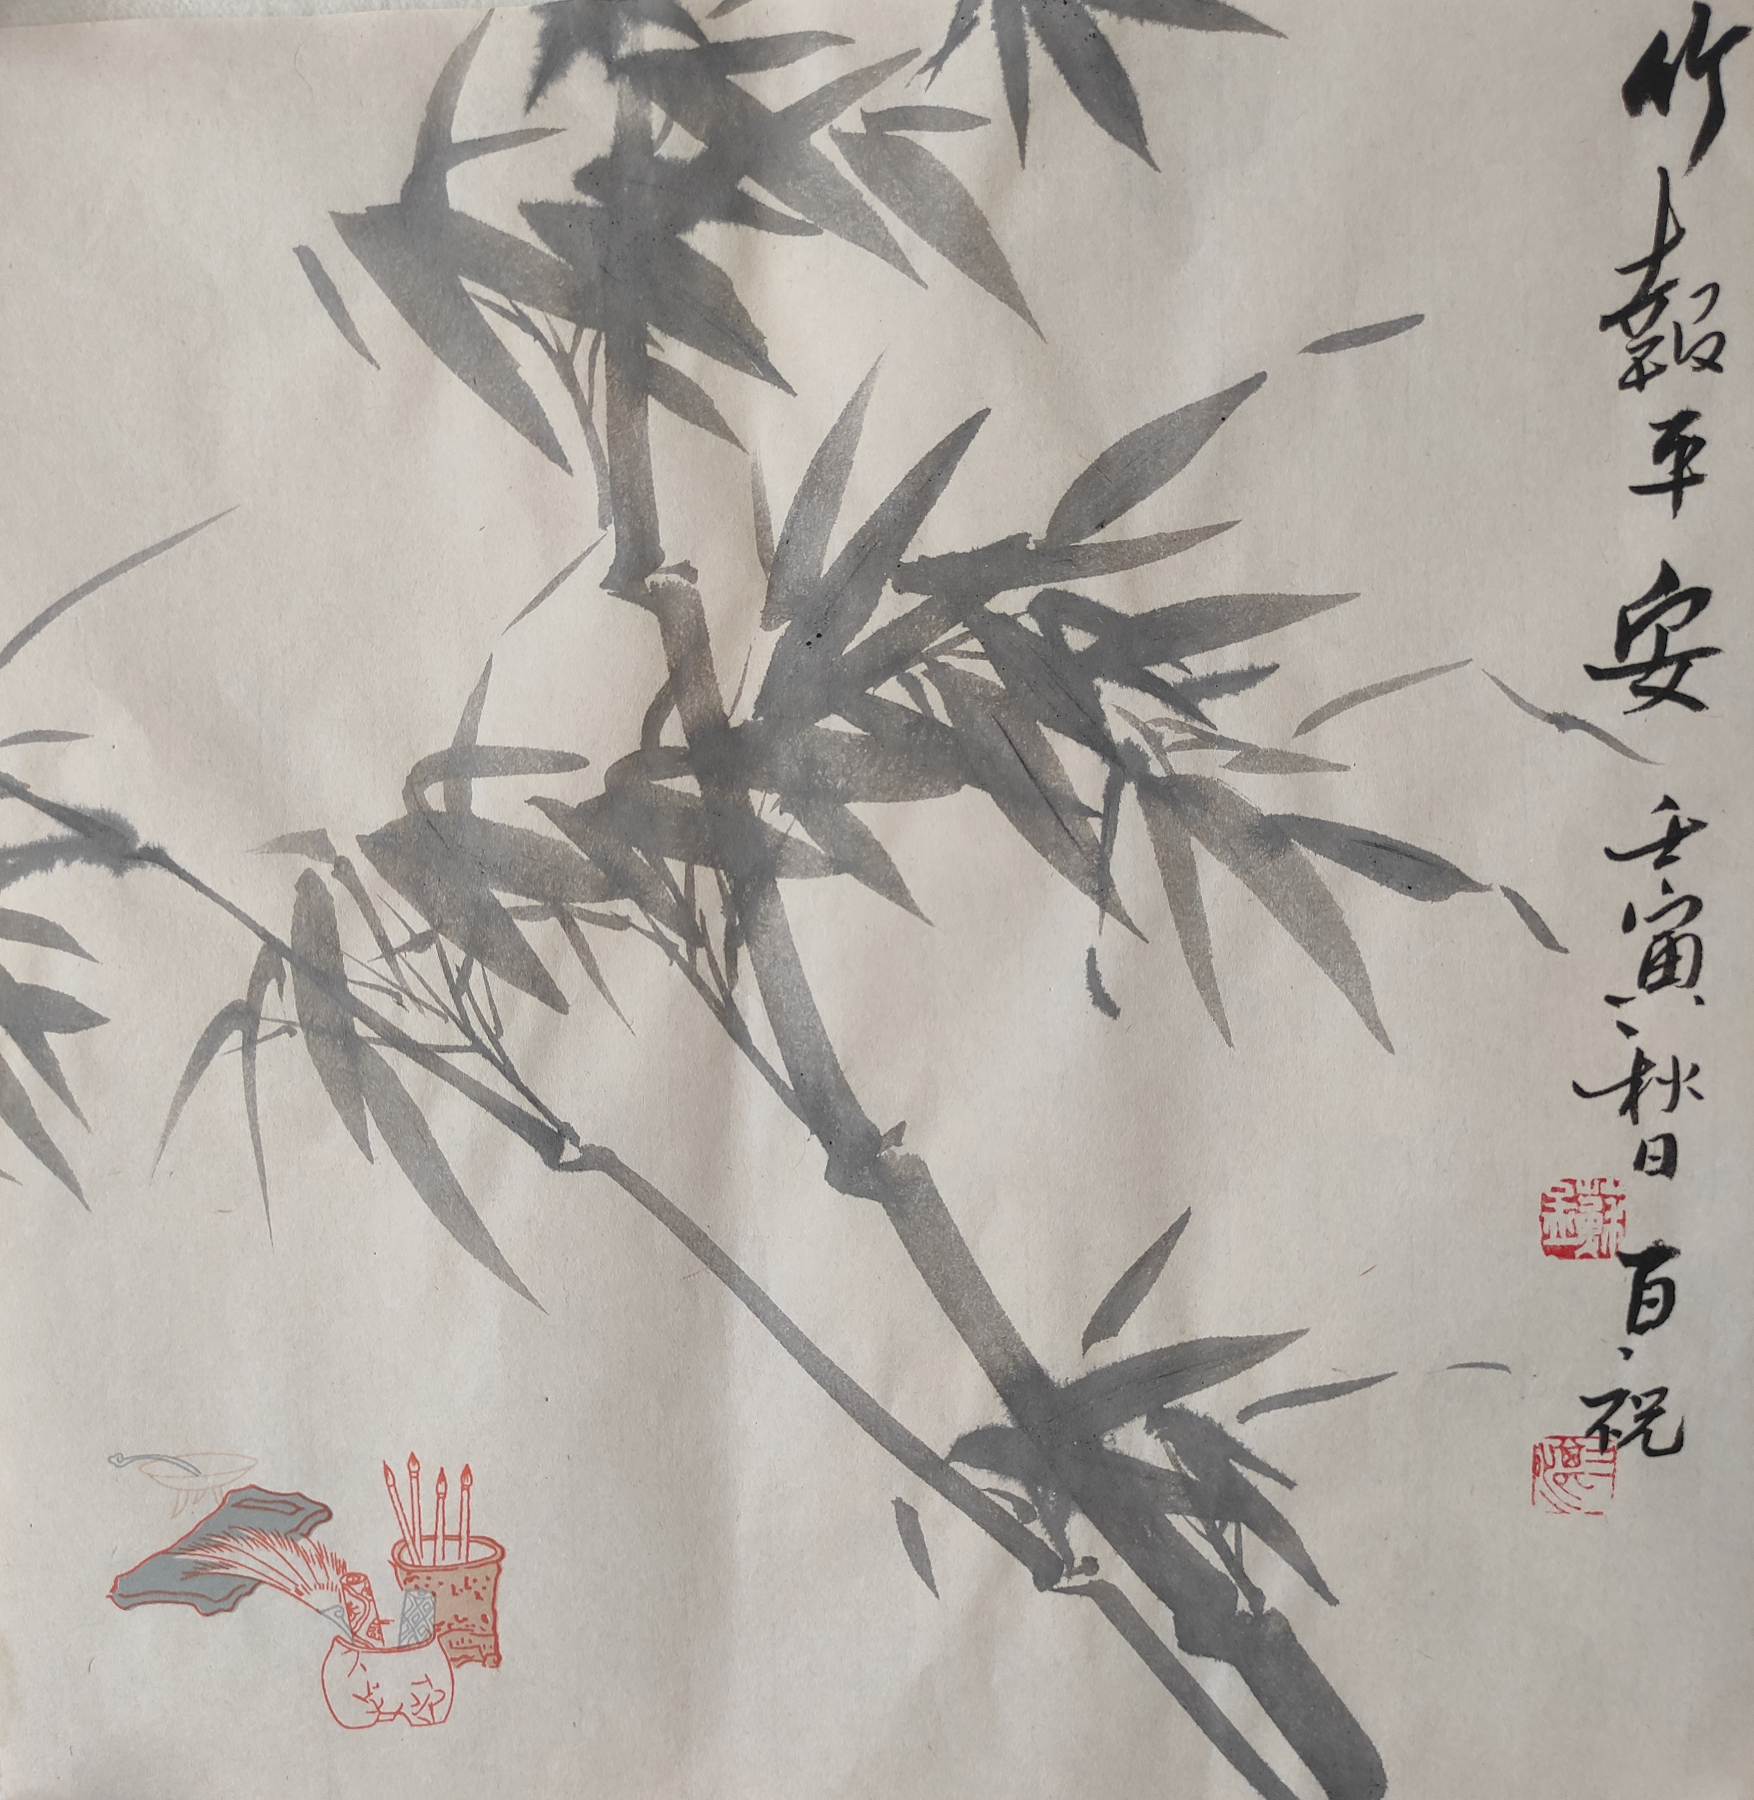 竹報平安 壬寅秋日 百祝